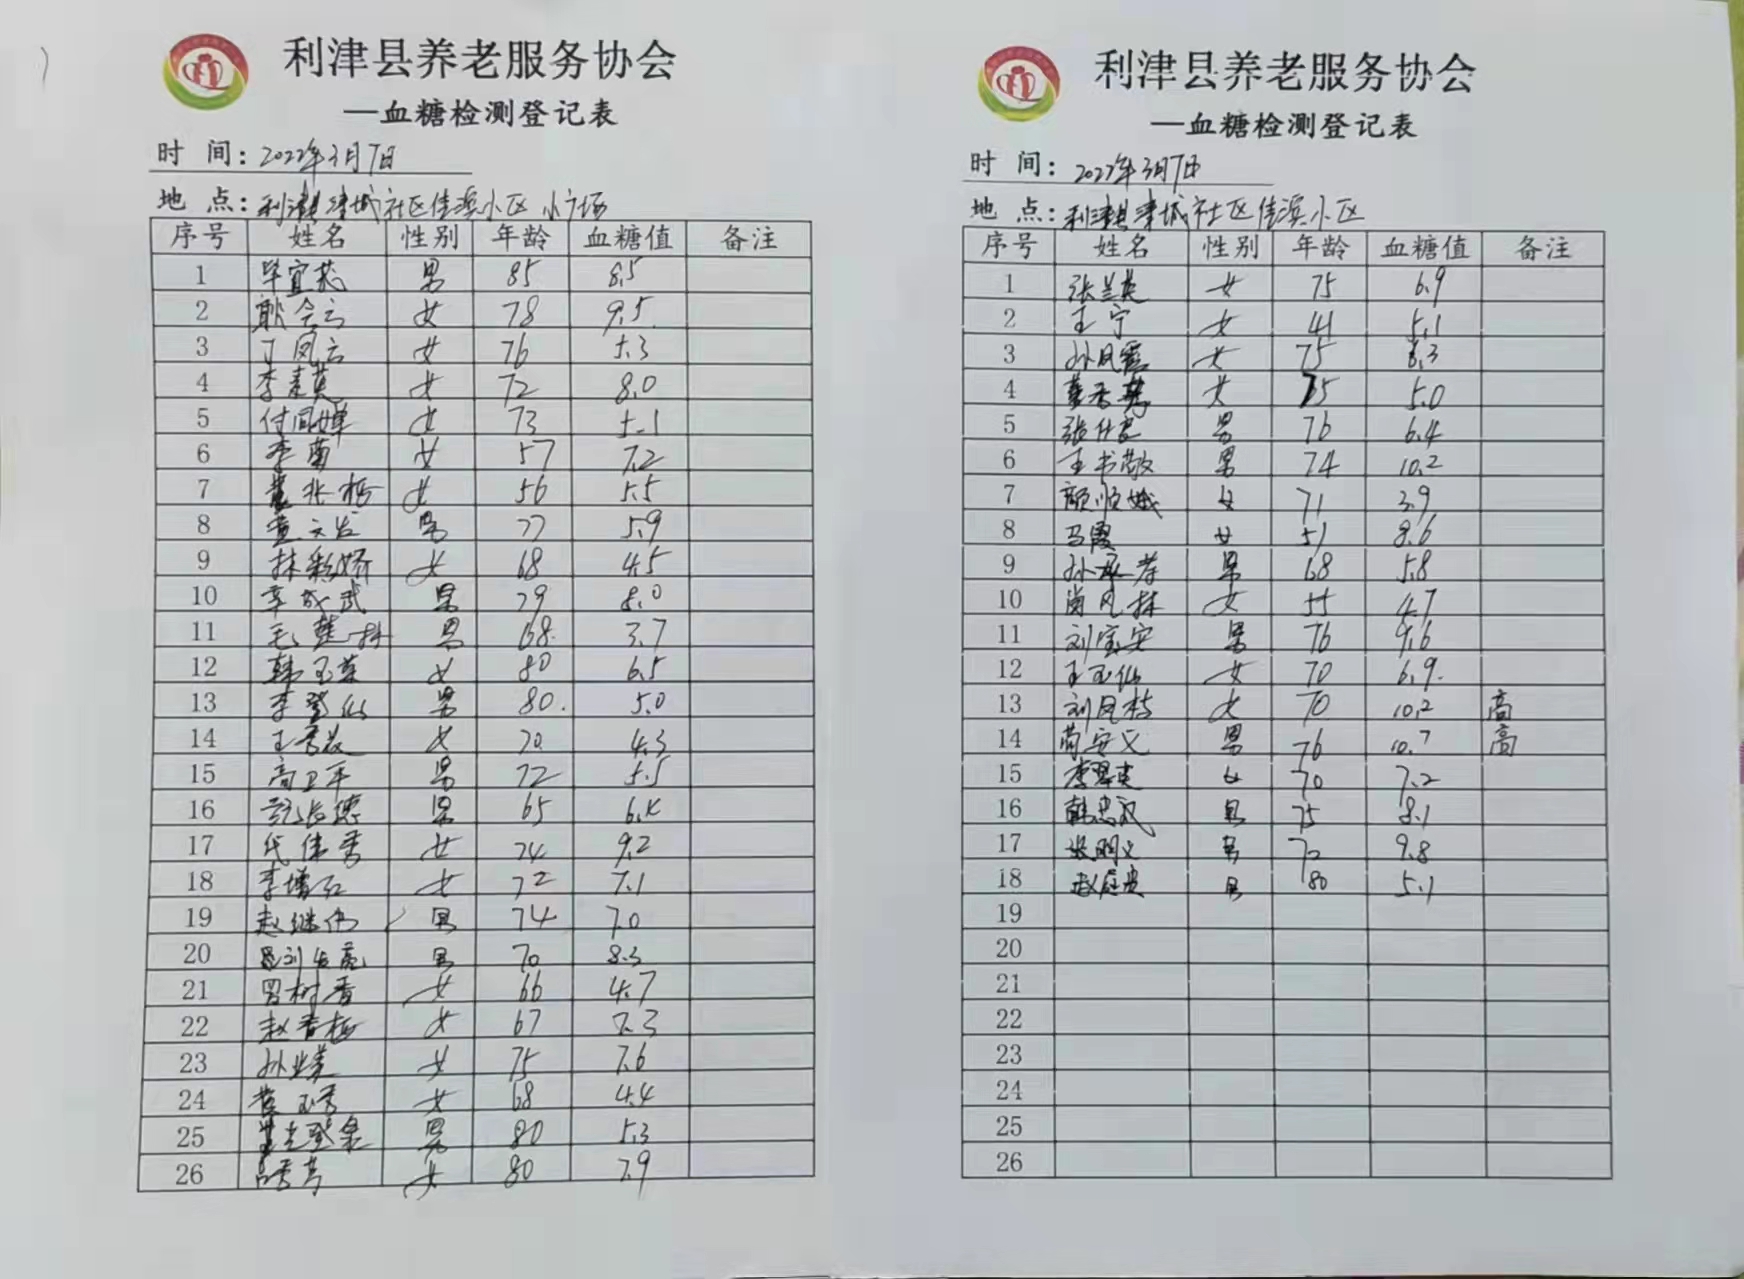 利津县养老服务协会
—血糖检测登记表
时 间：2022年3月7日
地 点：利津县津城社区佳滨小区 小广场
序号 姓名 性别 年龄 血糖值 备注
1 毕宜 男 85 8.5
2 耿会云 女 78 9.5
3 丁凤云 女 76 5.3
4 李素英 女 72 8.0
5 付 女 73 5.1
6 李菊 女 57 7.2
7 女 56 5.5
8 男 77 5.9
9 林彩娇 女 68 4.5
10 李成武 男 79 8.0
11 毛 男 68 3.7
12 韩玉英 女 80 6.5
13 李登仙 男 80 5.0
14 王秀 女 70 4.3
15 高卫平 男 72 5.5
16 男 65
17 代佳秀 女 74 9.2
18 李增红 女 72 7.1
19 赵继伟 男 74 7.0
20 男 70 8.3
21 吕树香 女 66 4.7
22 赵香梅 女 67 7.3
23 孙业美 女 75 7.6
24 黄玉秀 女 68 4.4
25 男 80 5.3
26 女 80 7.9
利津县养老服务协会
—血糖检测登记表
时 间：2022年3月7日
地 点：利津县津城社区佳滨小区
序号 姓名 性别 年龄 血糖值 备注
1 张兰英 女 75 6.9
2 王宁 女 41 5.1
3 孙凤霞 女 75 6.3
4 女 75 5.0
5 张 男 76 6.4
6 王书敬 男 74 10.2
7 颜顺娥 女 71 3.9
8 马霞 女 51 8.6
9 孙承 男 68 5.8
10 尚凤林 女 55 4.7
11 刘宝安 男 76 9.6
12 王玉仙 女 70 6.9
13 刘凤枝 女 70 10.2 高
14 安义 男 76 10.7 高
15 李翠英 女 70 7.2
16 韩忠武 男 75 8.1
17 明义 男 72 9.8
18 赵庭贵 男 80 5.1
19
20
21
22
23
24
25
26